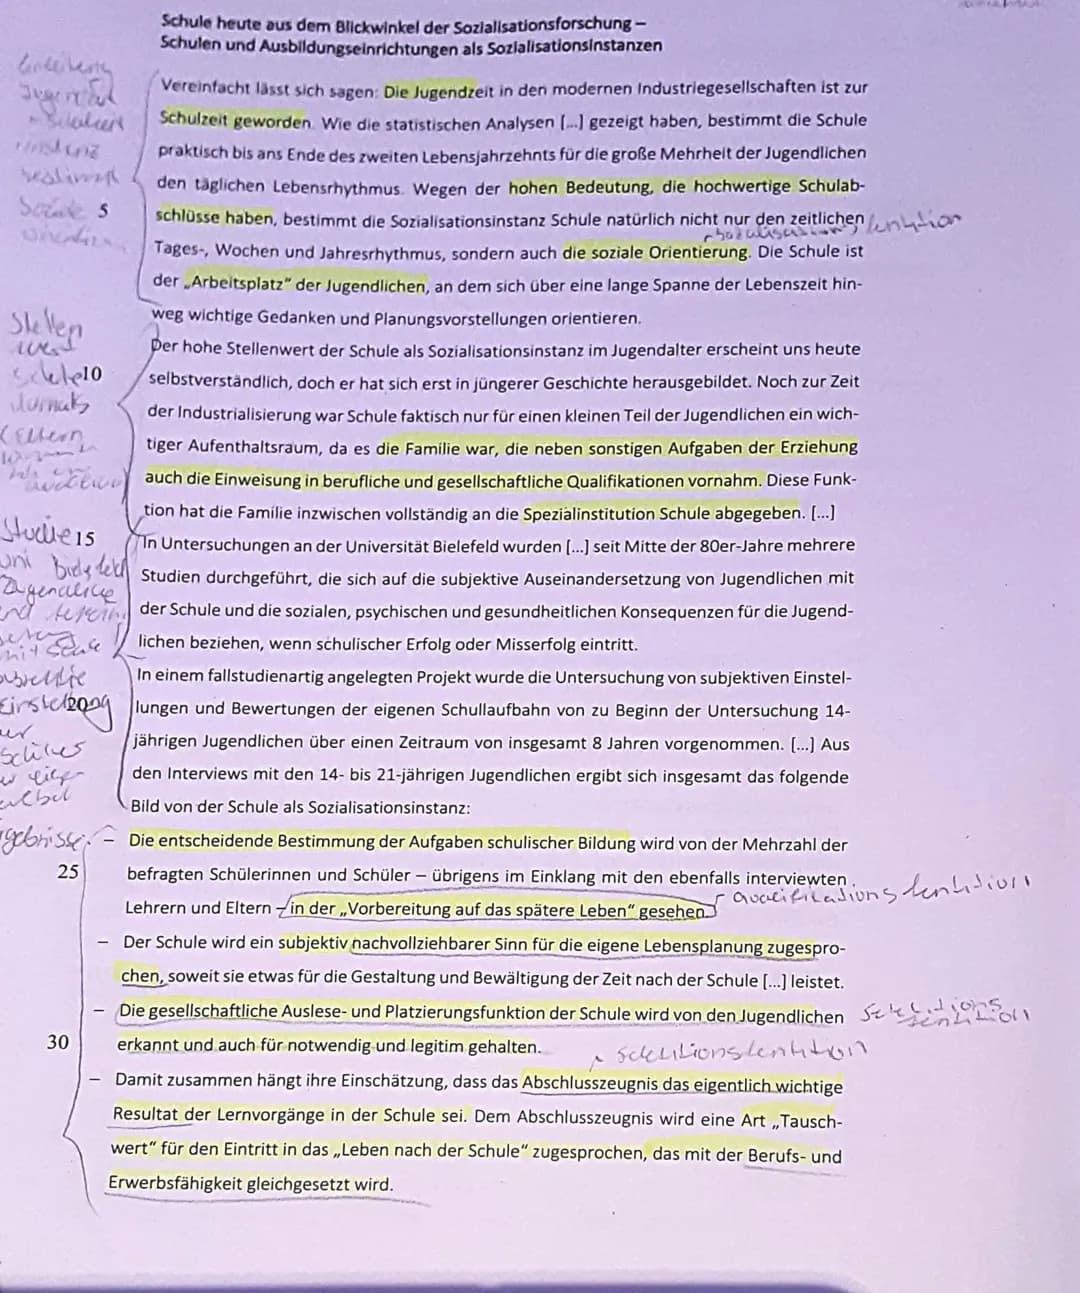 Schule heute aus dem Blickwinkel der Sozialisationsforschung –
Schulen und Ausbildungseinrichtungen als Sozialisationsinstanzen
Vereinfacht lässt sich sagen: Die Jugendzeit in den modernen Industriegesellschaften ist zur
Schulzeit geworden. Wie die statistischen Analysen [...] gezeigt haben, bestimmt die Schule
praktisch bis ans Ende des zweiten Lebensjahrzehnts für die große Mehrheit der Jugendlichen
den täglichen Lebensrhythmus. Wegen der hohen Bedeutung, die hochwertige Schulab-
5 schlüsse haben, bestimmt die Sozialisationsinstanz Schule natürlich nicht nur den zeitlichen
Tages-, Wochen und Jahresrhythmus, sondern auch die soziale Orientierung. Die Schule ist
der „Arbeitsplatz" der Jugendlichen, an dem sich über eine lange Spanne der Lebenszeit hin-
weg wichtige Gedanken und Planungsvorstellungen orientieren.
Der hohe Stellenwert der Schule als Sozialisationsinstanz im Jugendalter erscheint uns heute
10 selbstverständlich, doch er hat sich erst in jüngerer Geschichte herausgebildet. Noch zur Zeit
der Industrialisierung war Schule faktisch nur für einen kleinen Teil der Jugendlichen ein wich-
tiger Aufenthaltsraum, da es die Familie war, die neben sonstigen Aufgaben der Erziehung
auch die Einweisung in berufliche und gesellschaftliche Qualifikationen vornahm. Diese Funk-
tion hat die Familie inzwischen vollständig an die Spezialinstitution Schule abgegeben. [...]
Studie 15 In Untersuchungen an der Universität Bielefeld wurden [...] seit Mitte der 80er-Jahre mehrere
Studien durchgeführt, die sich auf die subjektive Auseinandersetzung von Jugendlichen mit
der Schule und die sozialen, psychischen und gesundheitlichen Konsequenzen für die Jugend-
lichen beziehen, wenn schulischer Erfolg oder Misserfolg eintritt.
In einem fallstudienartig angelegten Projekt wurde die Untersuchung von subjektiven Einstel-
20 lungen und Bewertungen der eigenen Schullaufbahn von zu Beginn der Untersuchung 14-
jährigen Jugendlichen über einen Zeitraum von insgesamt 8 Jahren vorgenommen. [...] Aus
den Interviews mit den 14- bis 21-jährigen Jugendlichen ergibt sich insgesamt das folgende
Bild von der Schule als Sozialisationsinstanz:
– Die entscheidende Bestimmung der Aufgaben schulischer Bildung wird von der Mehrzahl der
25 befragten Schülerinnen und Schüler – übrigens im Einklang mit den ebenfalls interviewten
Lehrern und Eltern – in der „Vorbereitung auf das spätere Leben" gesehen.
– Der Schule wird ein subjektiv nachvollziehbarer Sinn für die eigene Lebensplanung zugespro-
chen, soweit sie etwas für die Gestaltung und Bewältigung der Zeit nach der Schule [...] leistet.
– Die gesellschaftliche Auslese- und Platzierungsfunktion der Schule wird von den Jugendlichen
30 erkannt und auch für notwendig und legitim gehalten.
– Damit zusammen hängt ihre Einschätzung, dass das Abschlusszeugnis das eigentlich wichtige
Resultat der Lernvorgänge in der Schule sei. Dem Abschlusszeugnis wird eine Art „Tausch-
wert" für den Eintritt in das „Leben nach der Schule" zugesprochen, das mit der Berufs- und
Erwerbsfähigkeit gleichgesetzt wird.